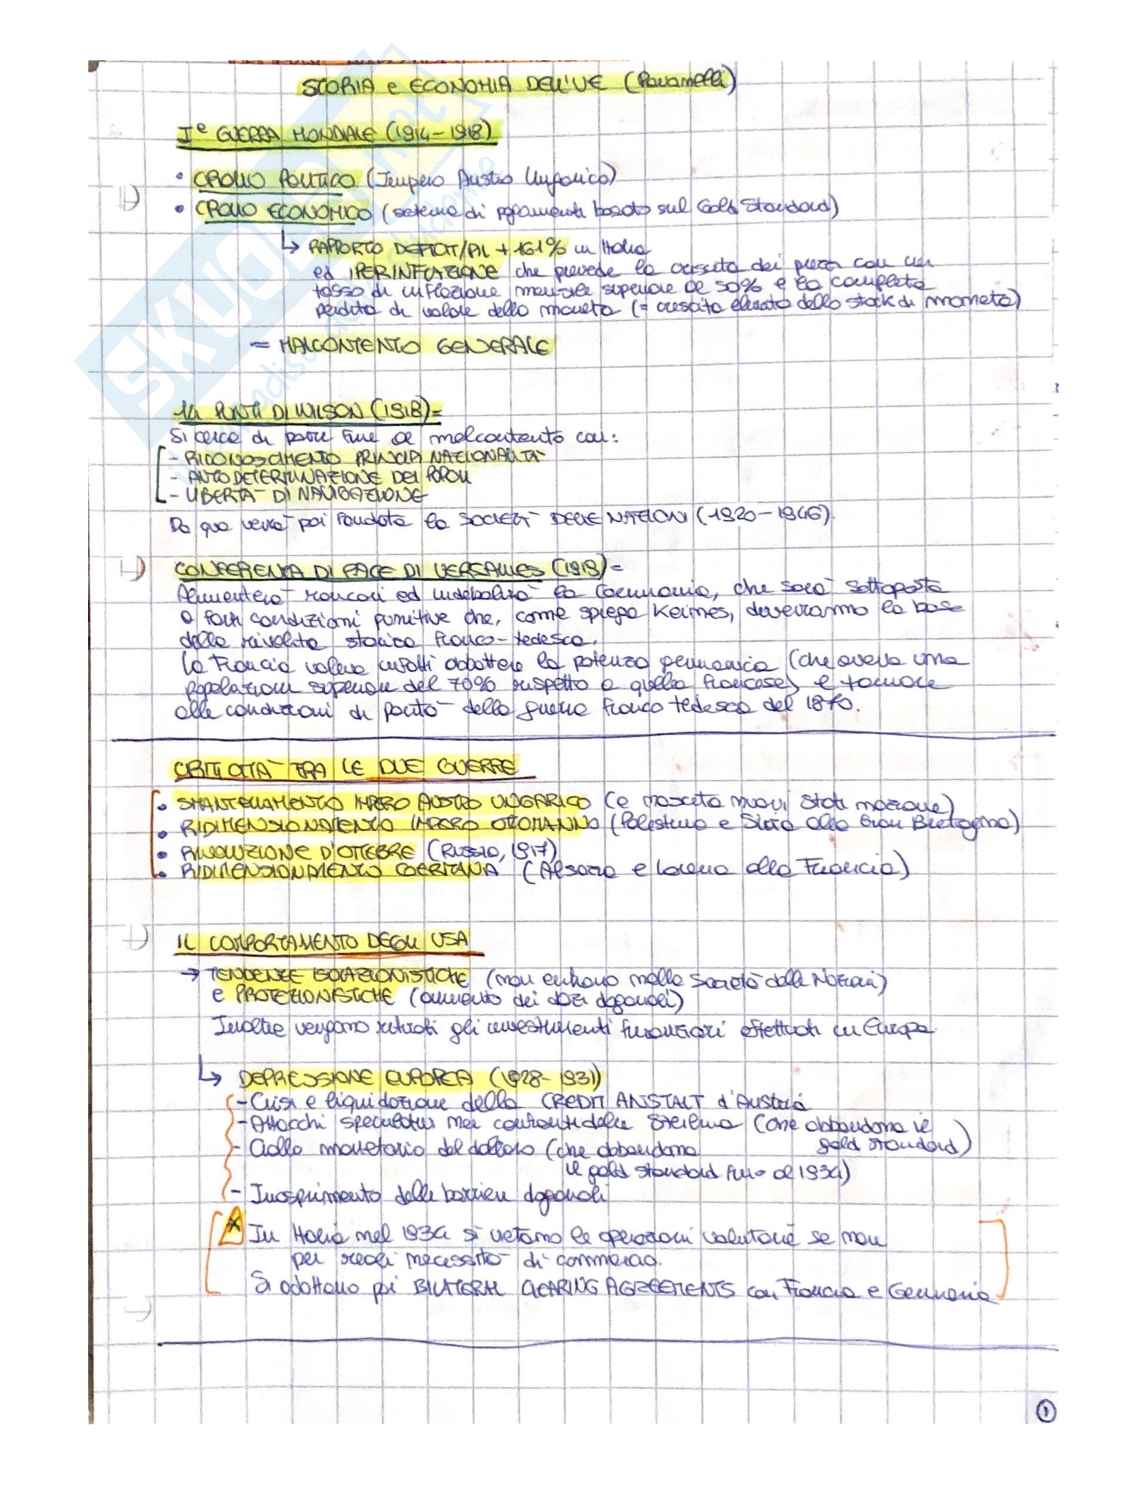 STORIA e ECONOMIA DELL'UE (Ravanelli)
Iª GUERRA MONDIALE (1914-1918)
• CROLLO POLITICO (Impero Austro Ungarico)
1) • CROLLO ECONOMICO (sistema di pagamenti basato sul Gold Standard)
↳ RAPPORTO DEFICIT/PIL + 161% in Italia
ed IPERINFLAZIONE che prevede la crescita dei prezzi con un
tasso di inflazione mensile superiore al 50% e la completa
perdita di valore della moneta (= crescita elevata dello stock di moneta)
= MALCONTENTO GENERALE
14 PUNTI DI WILSON (1918)=
Si cerca di porre fine al malcontento con:
- RICONOSCIMENTO PRINCIPI NAZIONALITÀ
- AUTODETERMINAZIONE DEI POPOLI
- LIBERTÀ DI NAVIGAZIONE
Da qua verrà poi fondata la SOCIETÀ DELLE NAZIONI (1920-1946)
CONFERENZA DI PACE DI VERSAILLES (1919)=
Alimenterà rancori ed indebolirà la Germania, che sarà sottoposta
a forti condizioni punitive che, come spiega Keines, diverranno la base
della rivalità storica franco-tedesca.
La Francia voleva infatti abbattere la potenza germanica (che aveva una
popolazione superiore del 70% rispetto a quella francese) e tornare
alle condizioni di parità della guerra franco tedesca del 1870.
CRITICITÀ TRA LE DUE GUERRE
• SMANTELLAMENTO IMPERO AUSTRO UNGARICO (e nascita nuovi Stati nazione)
• RIDIMENSIONAMENTO IMPERO OTOMANNO (Palestina e Siria alla Gran Bretagna)
• RIVOLUZIONE D'OTTOBRE (Russia, 1917)
• RIDIMENSIONAMENTO GERMANIA (Alsazia e Lorena alla Francia)
IL COMPORTAMENTO DEGLI USA
→ TENDENZE ISOLAZIONISTICHE (non entrano nella Società delle Nazioni)
e PROTEZIONISTICHE (aumento dei dazi doganali)
Inoltre vengono ritirati gli investimenti finanziari effettuati in Europa
↳ DEPRESSIONE EUROPEA (1928-1931)
- Crisi e liquidazione della CREDIT ANSTALT d'Austria
- Attacchi speculativi nei confronti della Sterlina (che abbandona il
gold standard)
- Crollo monetario del dollaro (che abbandona
il gold standard fino al 1934)
- Inasprimento delle barriere doganali
* In Italia nel 1934 si vietano le operazioni valutarie se non
per reali necessità di commercio.
Si adottano poi BILATERAL CLEARING AGREEMENTS con Francia e Germania
1